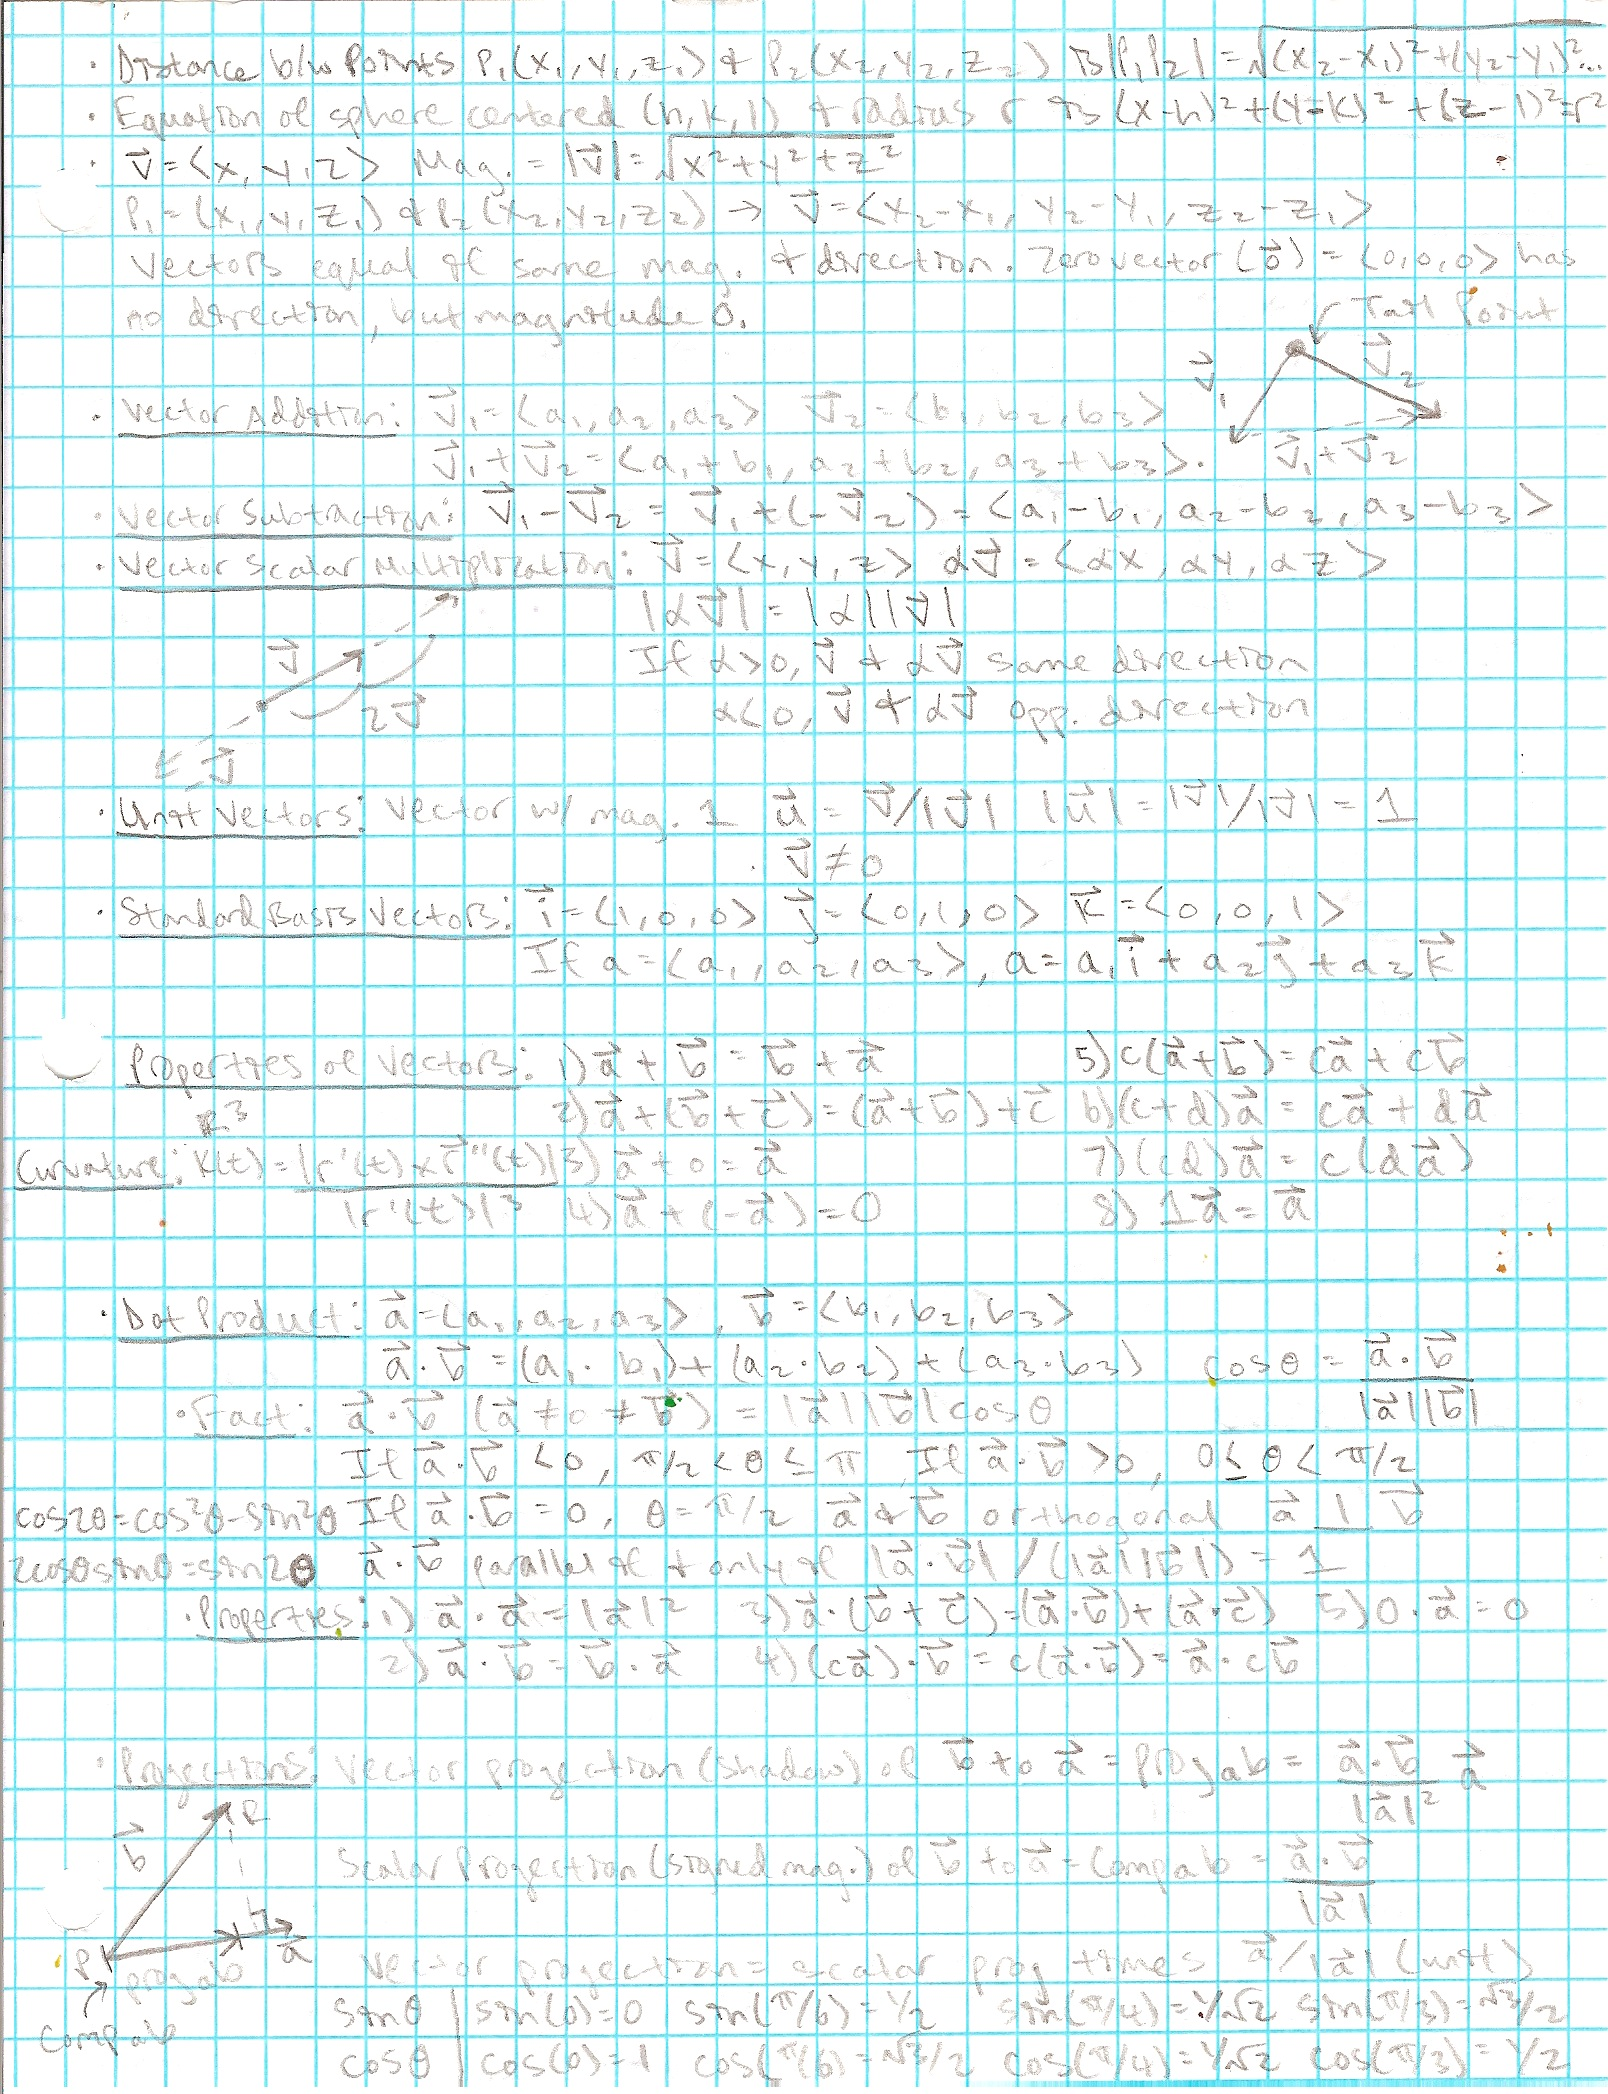 · Distance b/w Points P₁(x₁,y₁,z₁) & P₂(x₂,y₂,z₂) is |P₁P₂| = √(x₂-x₁)²+(y₂-y₁)²...
· Equation of sphere centered (h,k,l) & radius r is (x-h)²+(y-k)²+(z-l)²=r²
· v⃗=<x,y,z> Mag. = |v⃗| = √x²+y²+z²
P₁=(x₁,y₁,z₁) & P₂(x₂,y₂,z₂) → v⃗=<x₂-x₁, y₂-y₁, z₂-z₁>
Vectors equal if same mag. & direction. Zero vector (0⃗) = <0,0,0> has
no direction, but magnitude 0.
Tail Point
v⃗₁ v⃗₂
· Vector Addition: v⃗₁=<a₁,a₂,a₃> v⃗₂=<b₁,b₂,b₃>
v⃗₁+v⃗₂=<a₁+b₁, a₂+b₂, a₃+b₃>. v⃗₁+v⃗₂
· Vector Subtraction: v⃗₁-v⃗₂ = v⃗₁+(-v⃗₂) = <a₁-b₁, a₂-b₂, a₃-b₃>
· Vector Scalar Multiplication: v⃗=<x,y,z> αv⃗ = <αx, αy, αz>
|αv⃗| = |α||v⃗|
v⃗ If α>0, v⃗ & αv⃗ same direction
2v⃗ α<0, v⃗ & αv⃗ opp. direction
-v⃗
· Unit Vectors: Vector w/ mag. 1 u⃗ = v⃗/|v⃗| |u⃗| = |v⃗|/|v⃗| = 1
v⃗≠0
· Standard Basis Vectors: i⃗=<1,0,0> j⃗=<0,1,0> k⃗=<0,0,1>
If a=<a₁,a₂,a₃>, a=a₁i⃗+a₂j⃗+a₃k⃗
Properties of Vectors: 1) a⃗+b⃗=b⃗+a⃗ 5) c(a⃗+b⃗)=ca⃗+cb⃗
R³ 2) a⃗+(b⃗+c⃗)=(a⃗+b⃗)+c⃗ 6) (c+d)a⃗=ca⃗+da⃗
Curvature: K(t)=|r'(t)×r⃗''(t)| 3) a⃗+0=a⃗ 7) (cd)a⃗=c(da⃗)
|r'(t)|³ 4) a⃗+(-a⃗)=0 8) 1a⃗=a⃗
· Dot Product: a⃗=<a₁,a₂,a₃>, b⃗=<b₁,b₂,b₃>
a⃗·b⃗=(a₁·b₁)+(a₂·b₂)+(a₃·b₃) cosθ = a⃗·b⃗
· Fact: a⃗·b⃗ (a⃗≠0≠b⃗) = |a⃗||b⃗|cosθ |a⃗||b⃗|
If a⃗·b⃗<0, π/2<θ≤π If a⃗·b⃗>0, 0≤θ<π/2
cos2θ=cos²θ-sin²θ If a⃗·b⃗=0, θ=π/2 a⃗&b⃗ orthogonal a⃗⊥b⃗
2cosθsinθ=sin2θ a⃗·b⃗ parallel if & only if |a⃗·b⃗|/(|a⃗||b⃗|)=1
· Properties: 1) a⃗·a⃗=|a⃗|² 3) a⃗·(b⃗+c⃗)=(a⃗·b⃗)+(a⃗·c⃗) 5) 0·a⃗=0
2) a⃗·b⃗=b⃗·a⃗ 4) (ca⃗)·b⃗=c(a⃗·b⃗)=a⃗·cb⃗
· Projections: Vector projection (shadow) of b⃗ to a⃗ = projab = a⃗·b⃗ a⃗
R |a⃗|²
b⃗ Scalar Projection (signed mag.) of b⃗ to a⃗ = Compab = a⃗·b⃗
|a⃗|
P projab a⃗ Vector projection = scalar proj times a⃗/|a⃗| (unit)
Compab sinθ | sin(0)=0 sin(π/6)=1/2 sin(π/4)=1/√2 sin(π/3)=√3/2
cosθ | cos(0)=1 cos(π/6)=√3/2 cos(π/4)=1/√2 cos(π/3)=1/2